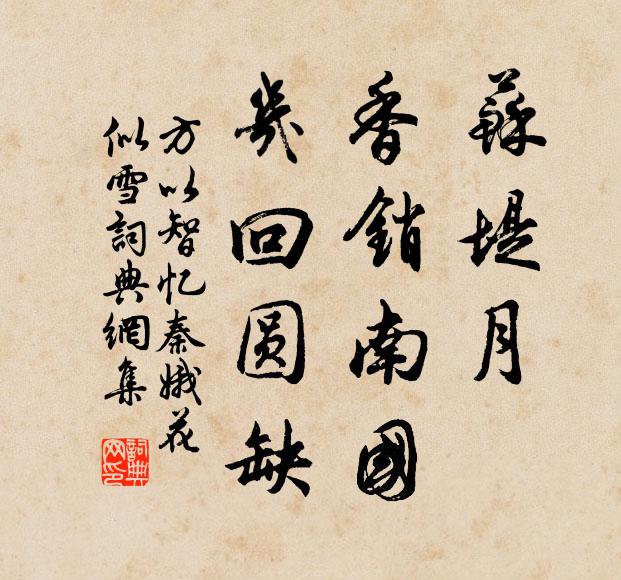 蘇堤月
香銷南國
幾回圆缺
方以智忆秦娥花
似雪詞典網集
詞典
网印